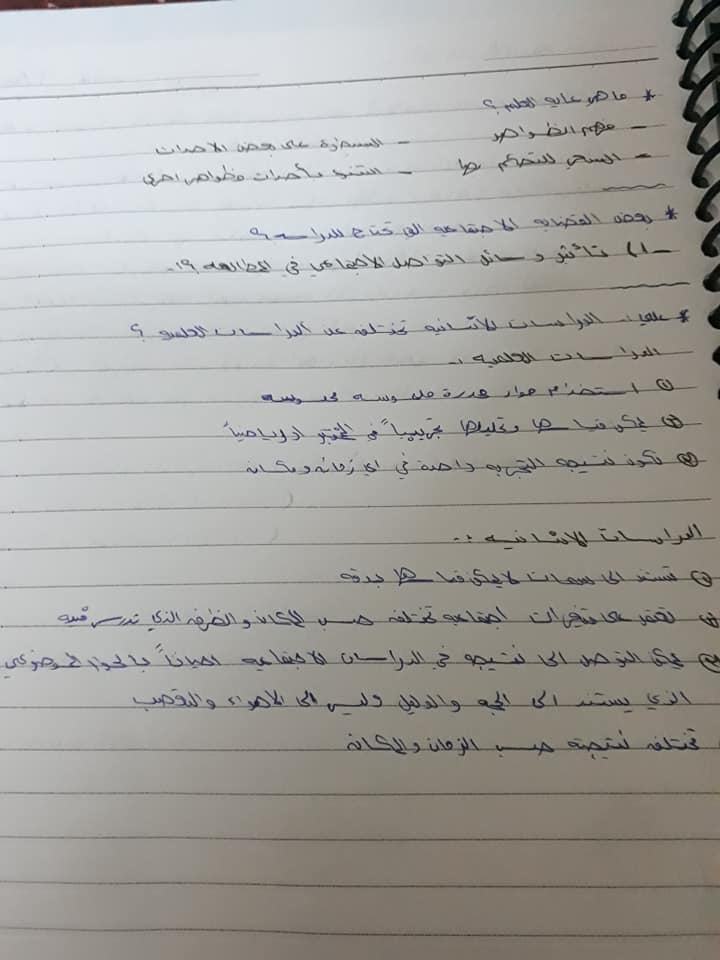 * ما هي غاية العلم؟
- فهم الظواهر - السيطرة على بعض الاحداث
- السعي للتحكم بها - التنبؤ بأحداث وظواهر اخرى
* بعض القضايا الاجتماعية التي تحتاج للدراسة؟
-١) تأثير وسائل التواصل الاجتماعي في المطالعة؟!.
* علل: الدراسات الانسانية تختلف عن الدراسات العلمية؟
الدراسات العلمية :.
① استخدام مواد مجردة ملموسة محسوسة
② يمكن قياسها وتحليلها تجريبياً في المختبر او رياضياً
③ تكون نتيجة التجربة واحدة في اي زمان ومكان
الدراسات الانسانية :.
① تستند الى سمات لا يمكن قياسها بدقة
② تعتمد على متغيرات اجتماعية تختلف حسب المكان والظرف الذي تدرس فيه
③ يمكن التوصل الى نتيجة في الدراسات الاجتماعية احياناً بالحوار الموضوعي
الذي يستند الى الحجة والدليل وليس الى الاهواء والتعصب
تختلف نتيجته حسب الزمان والمكان